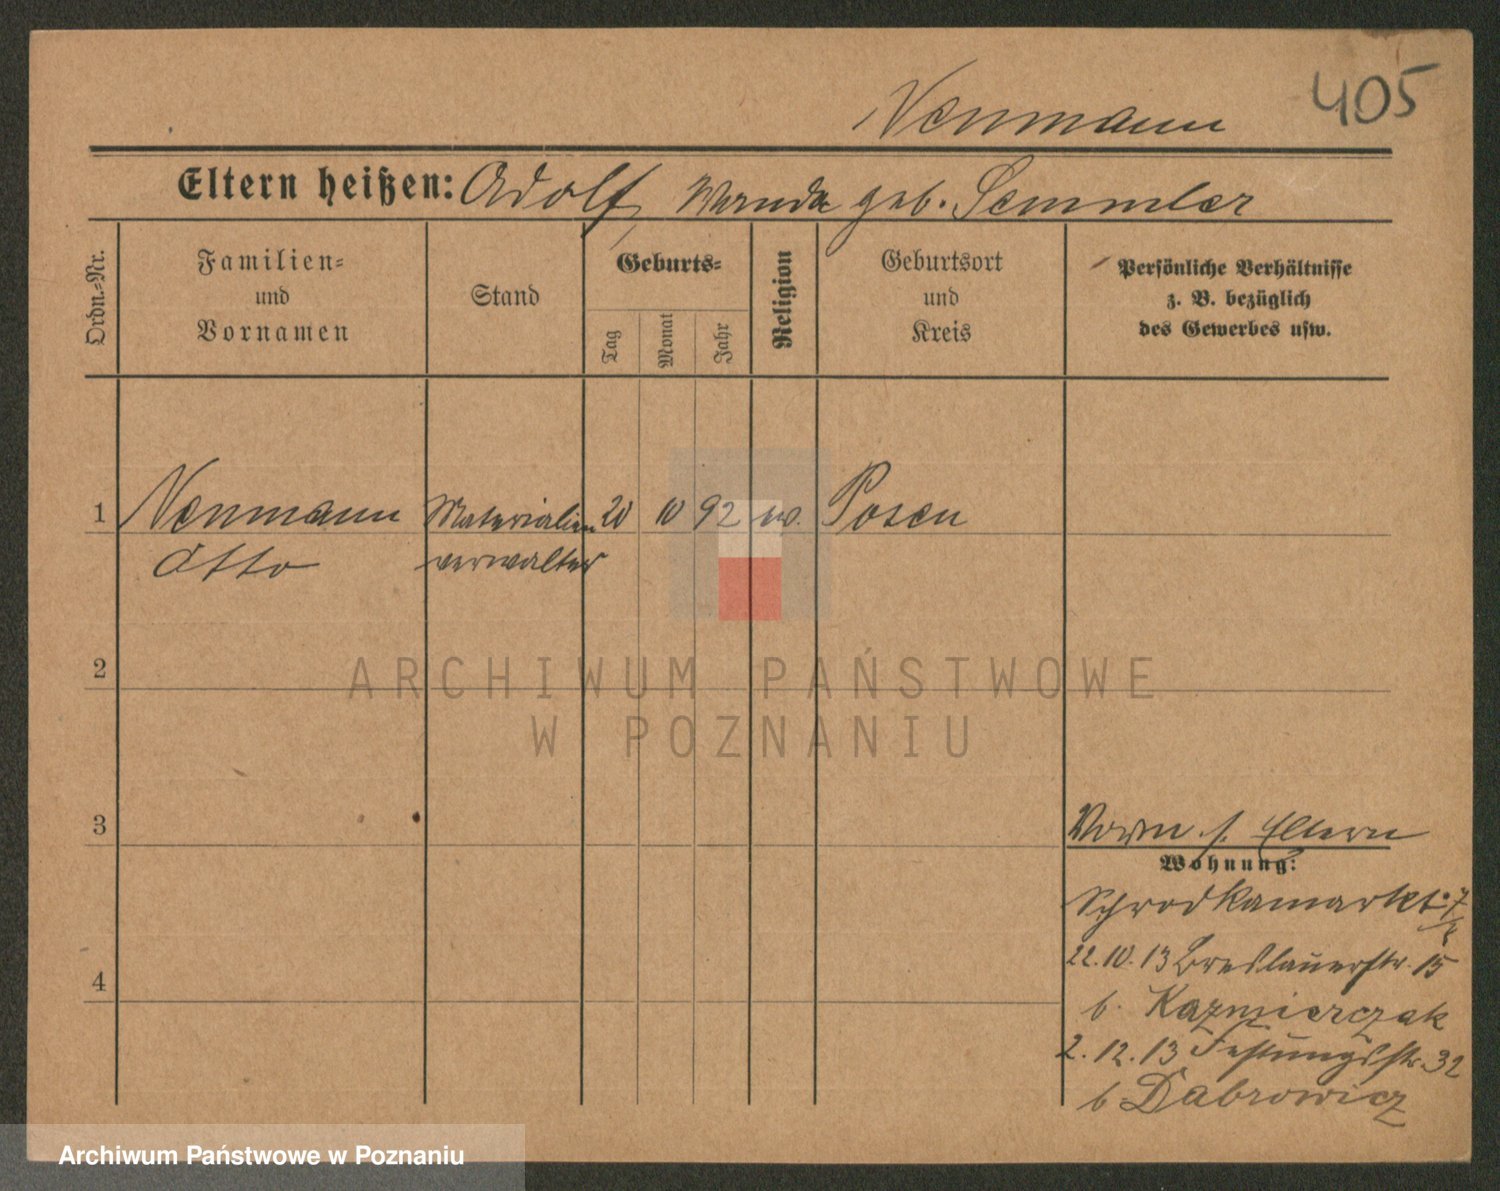 405
Neumann
Eltern heißen: Adolf, Wanda geb. Semmler
Ordn.-Nr.
Familien- und Vornamen
Stand
Geburts-
Tag
Monat
Jahr
Religion
Geburtsort und Kreis
Persönliche Verhältnisse z. B. bezüglich des Gewerbes usw.
1 Neumann Materialien 20 10 92 ev. Posen
Otto verwalter
2
3
4
Eltern
Wohnung:
Schrodkamarkt 7
22.10.13 Breslauerstr. 15
b. Kazmierczak
2.12.13 Festungsstr. 32
b Dabrowicz
ARCHIWUM PAŃSTWOWE
W POZNANIU
Archiwum Państwowe w Poznaniu